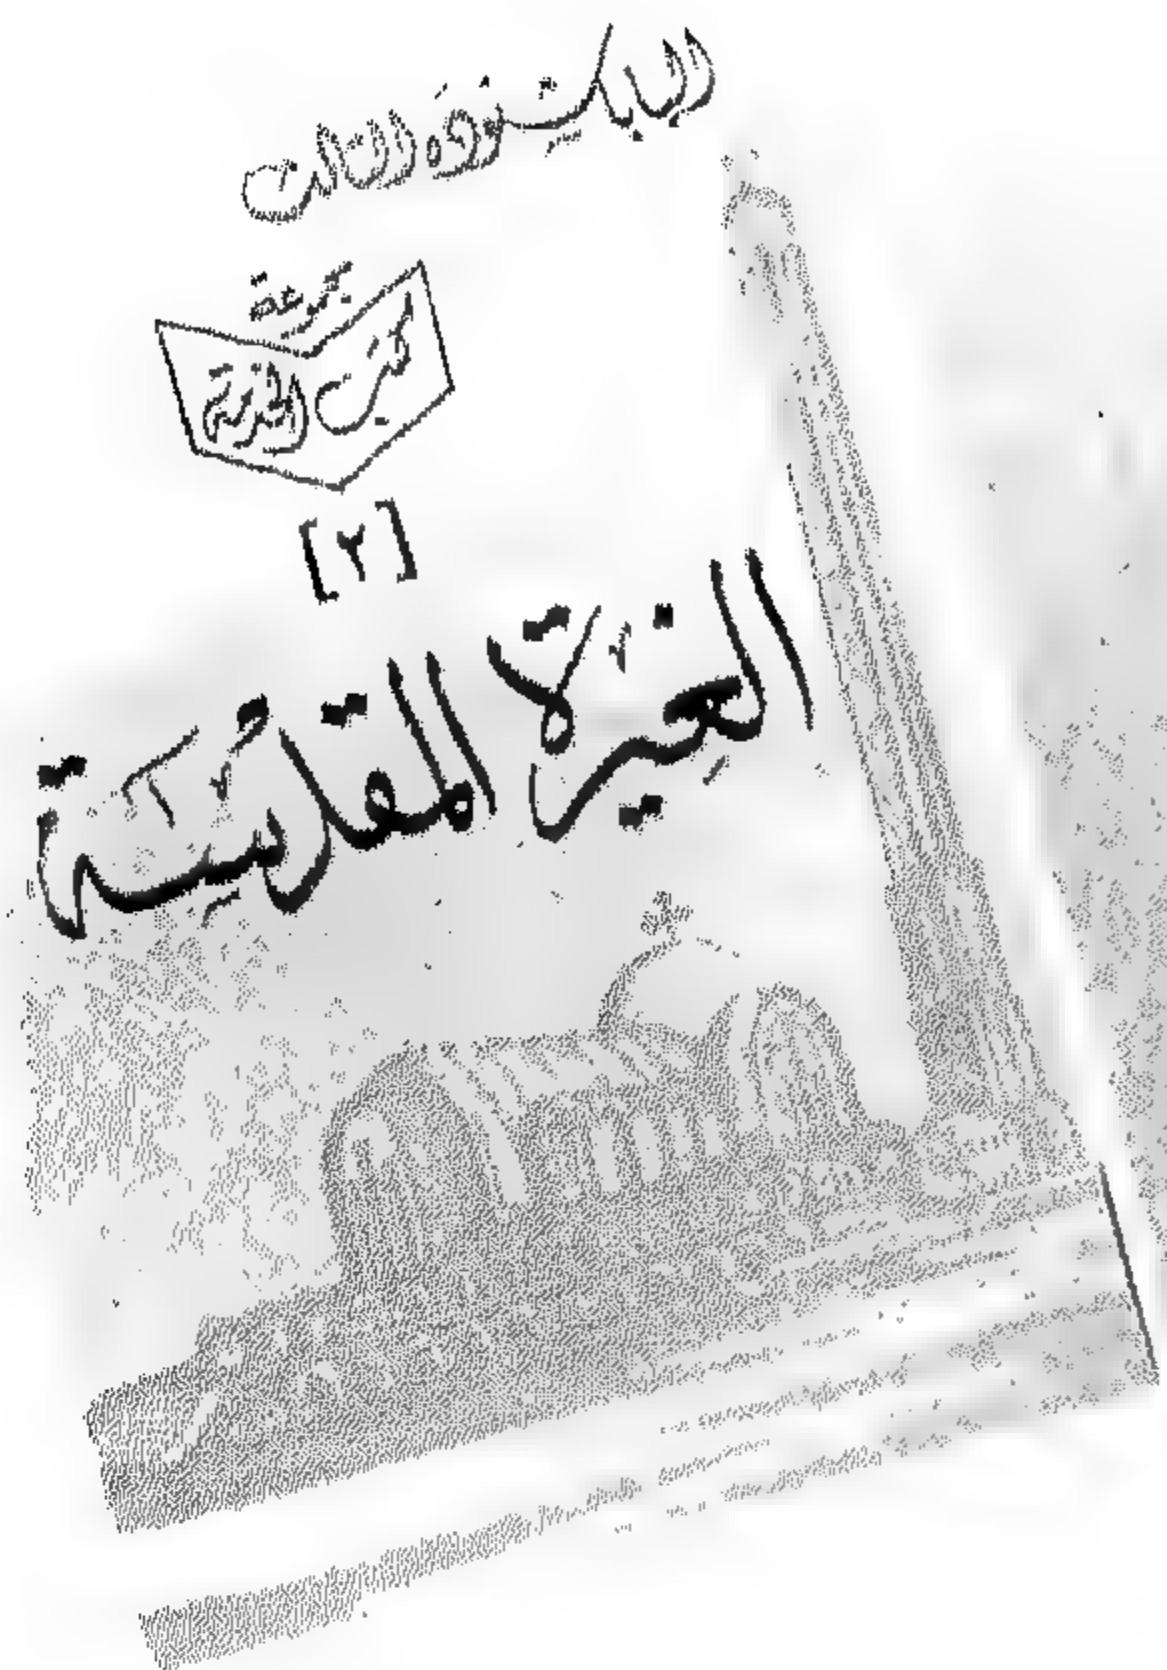 البابا شنوده الثالث
مجموعة
كتب الخدمة
[٢]
الغيرة المقدسة